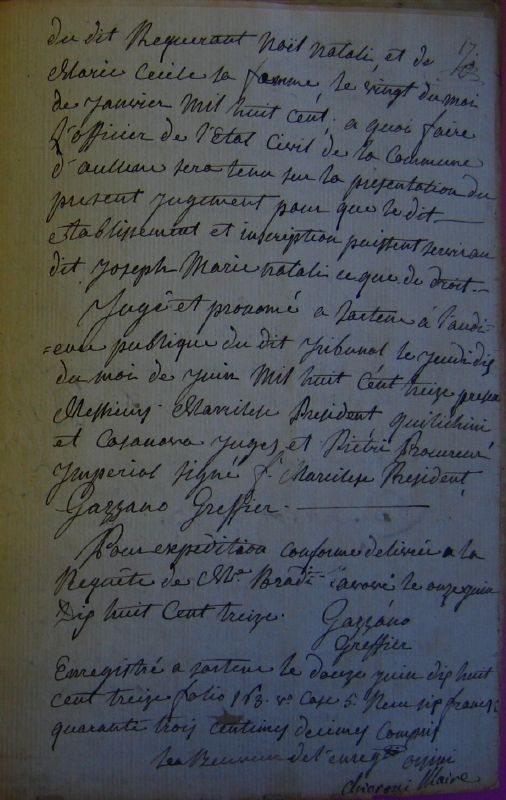 du dit Requerant Noël Natali, et de
Marie Cecile sa femme, le vingt du moi
de Janvier Mil huit Cent; a quoi faire
l'officier de l'Etat Civil de la Commune
d'aullene sera tenu sur la presentation du
present Jugement pour que le dit
etablissement et inscription puissent servir au
dit Joseph Marie Natali ce que de droit.
Jugé et prononcé a Sartene a l'audi-
=ence publique du dit Tribunal le Jeudi dix
du moi de Juin Mil huit Cent treize presen
Messieurs President, quilichini
et Casanova Juges, et Pietri Procureur
Imperial signé President
Gazzano Greffier.
Pour expédition conforme delivrée a la
Requête de Me. avoué le onze juin
dix huit Cent treize. Gazzano
Greffier
Enregistré a Sartene le douze juin dix huit
cent treize folio 163. vo. Case 5. Recu six francs
quarante trois centimes decimes compris
Le Receveur de l'enregt
Chiaroni Maire